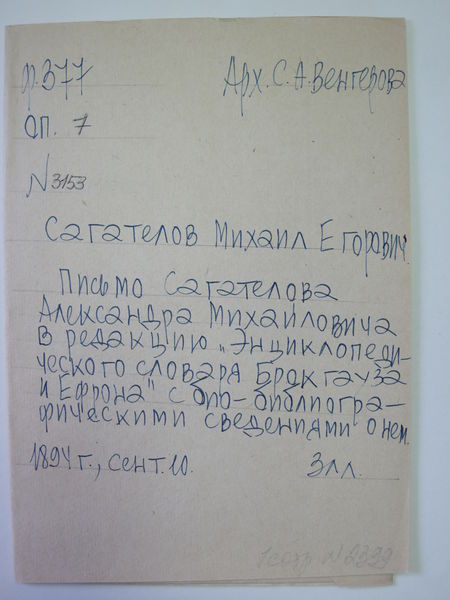 ф. 377 Арх. С. А. Венгерова
оп. 7
N 3153
Сагателов Михаил Егорович.
Письмо Сагателова
Александра Михайловича
в редакцию „Энциклопеди-
ческого словаря Брокгауза
и Ефрона" с био-библиогра-
фическими сведениями о нем.
1894 г., сент. 10. 3 лл.
N 2323